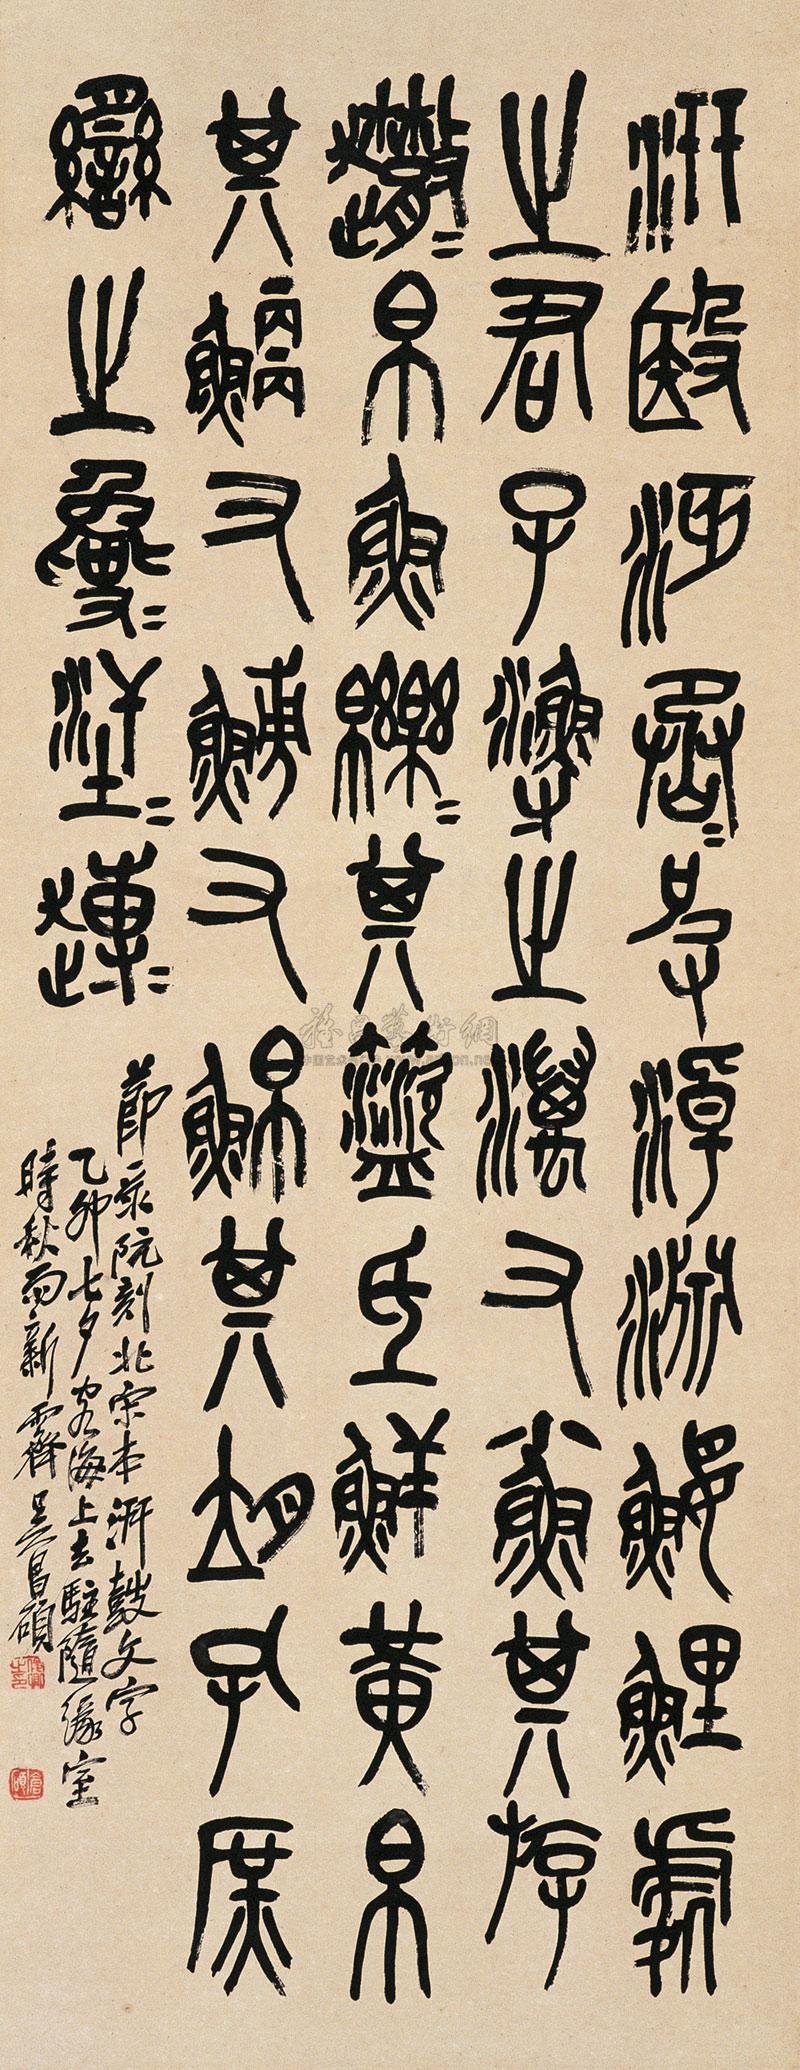 汧殹沔烝=皮淖淵鰋鯉處
之君子漁之澫又小魚其斿
𨖷=帛魚皪=其盜氐鮮黃帛
其鯾又䱉又䱇其朔孔庶
臠之㚟=汗=趠=
節彔阮刻北宋本汧鼓文字
乙卯七夕客海上去駐隨緣室
時秋雨新霽吳昌碩